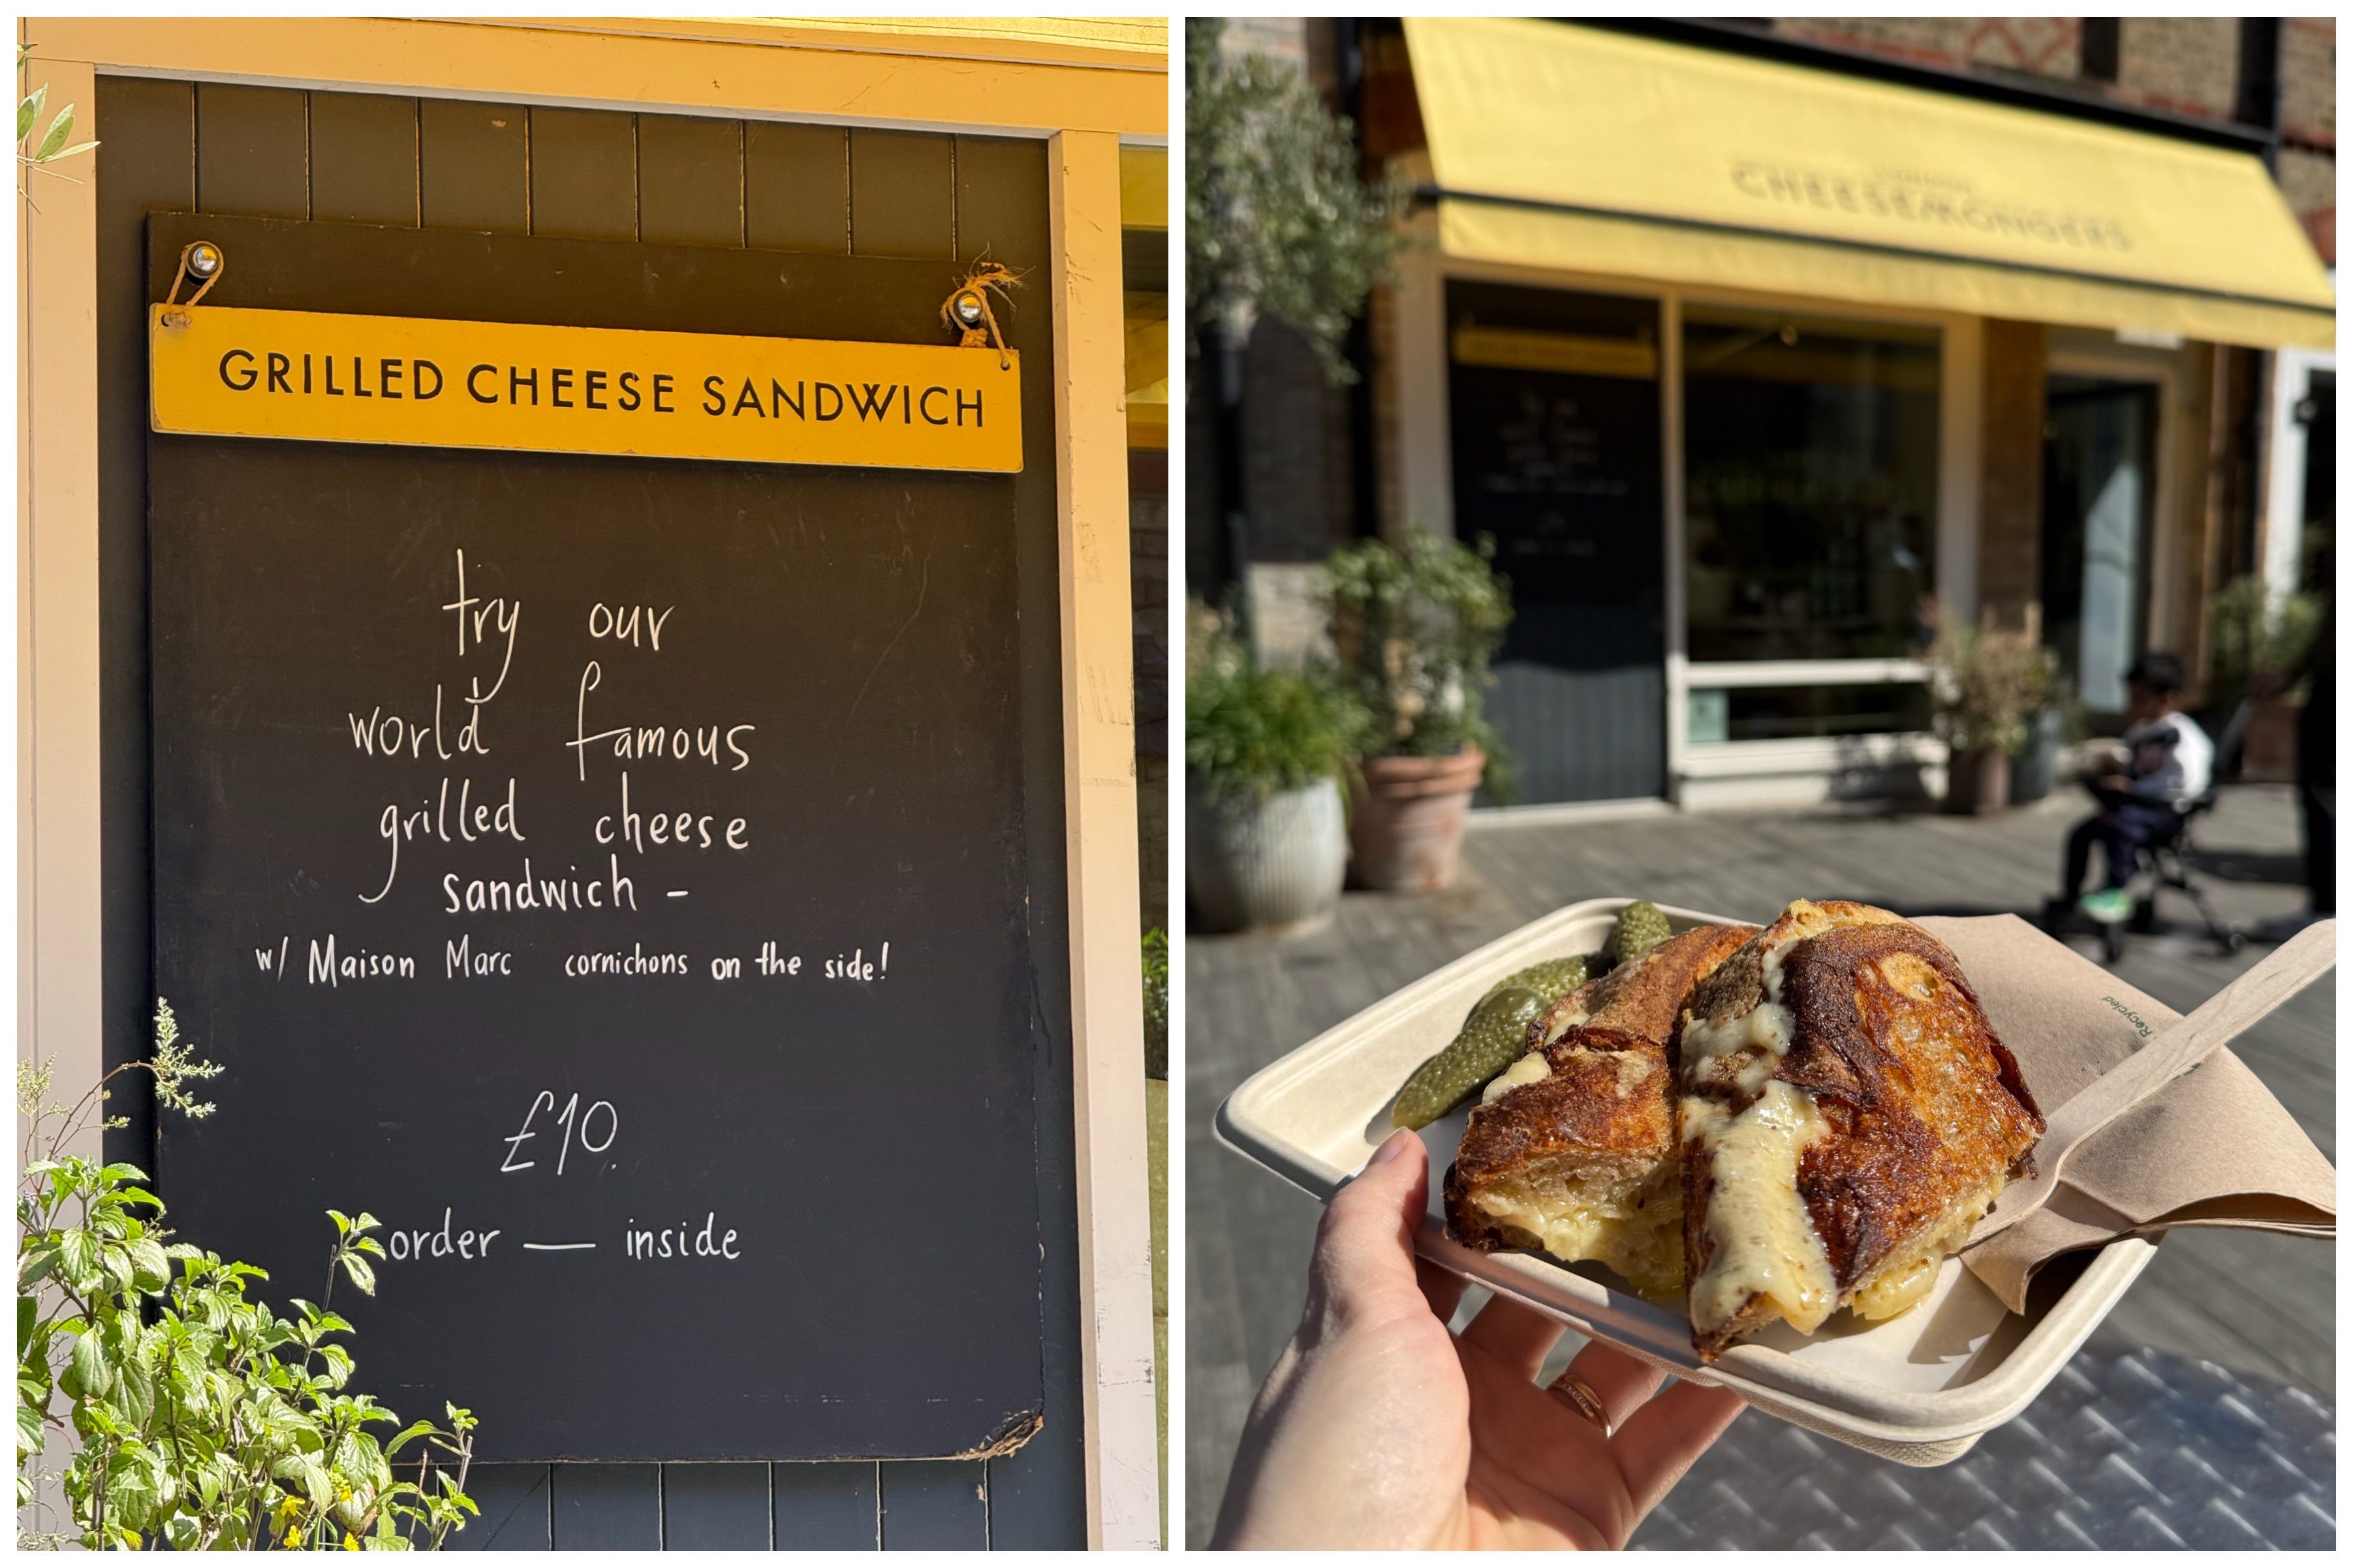 GRILLED CHEESE SANDWICH
try our
world famous
grilled cheese
sandwich –
w/ Maison Marc cornichons on the side!
£10.
order — inside
CHEESEMONGERS
Recycled